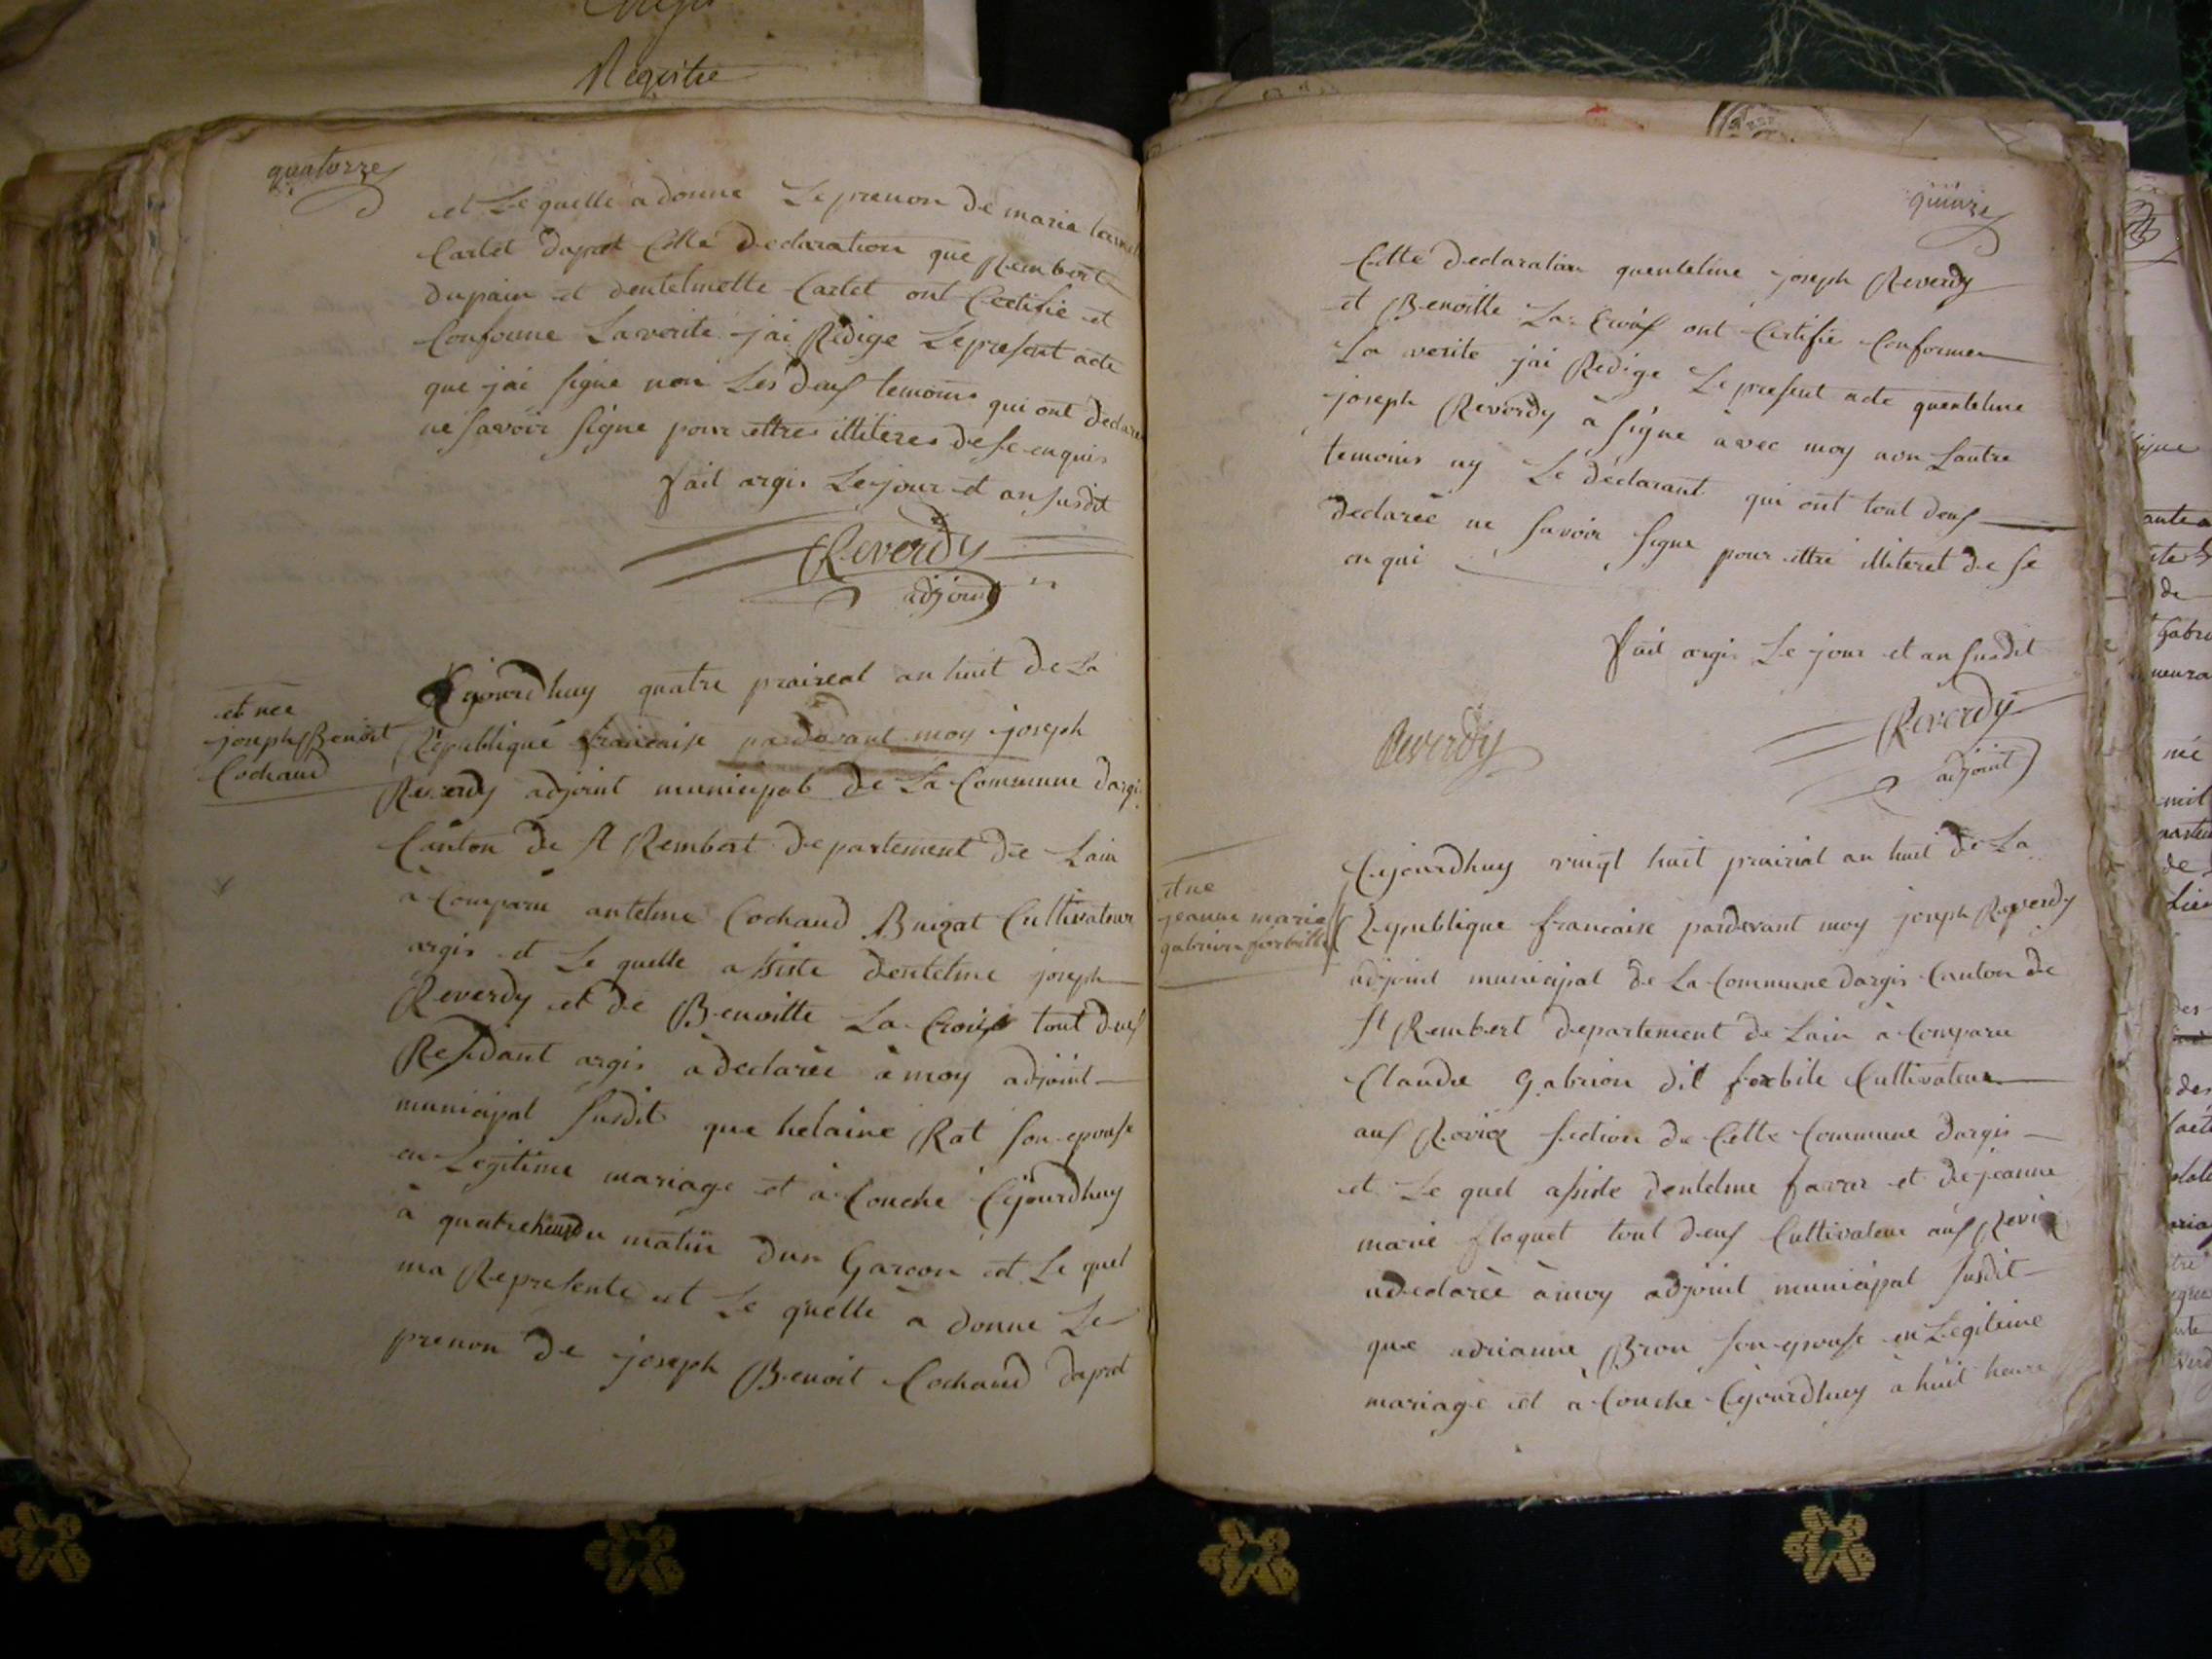 Registre
quatorze
et Le quelle à donne Le prenon de marie
Cartet daprest Cette declaration que Rembert
dupain et dentelmette Cartet ont Certifie et
Conforme La verite jai Redige Le present acte
que jai signe non Les deus temoins qui ont declare
ne savoir signe pour ettres illiteres de se enquis
fait argis Le jour et an susdit
Reverdy
adjoint
et nee
joseph Benoit
Cochaud
Cejourdhuy quatre praireal an huit de La
Republique francaise pardevant moy joseph
Reverdy adjoint municipal de La Commune dargis
Canton de st Rembert departement de Lain
à Comparu antelme Cochaud Buigat Cultivateur
argis et Le quelle assiste dentelme joseph
Reverdy et de Benoitte La Croix tout deus
Resedant argis à declarèe à moy adjoint
municipal susdit que helaine Rat son epouse
en Legitime mariage et à Couche Cejourdhuy
à quatre heure du matin dun Garcon et Le quel
ma Represente et Le quelle à donne Le
prenon de joseph Benoit Cochaud daprest
quinze
Cette declaration quentelme joseph Reverdy
et Benoitte La Croix ont Certifie Conforme
La verite jai Redige Le present acte quentelme
joseph Reverdy à signe avec moy non Lautre
temoins ny Le declarant qui ont tout deus
declarée ne savoir signe pour ettre illiteret de se
en qui
fait argis Le jour et an susdit
Reverdy
Reverdy
adjoint
et ne
jeanne marie
gabrion forbille
Cejourdhuy vingt huit prairial an huit de La
Republique francaise pardevant moy joseph Reverdy
adjoint municipal de La Commune dargis Canton de
st Rembert departement de Lain à Comparu
Claude Gabrion dit forbile Cultivateur
aus Rovier section de Cette Commune dargis
et Le quel assiste dentelme favre et de jeanne
marie floquet tout deus Cultivateur aus
a declarèe à moy adjoint municipal susdit
que adrianne Bron son epouse en Legitime
mariage et à Couche Cejourdhuy à huit heure